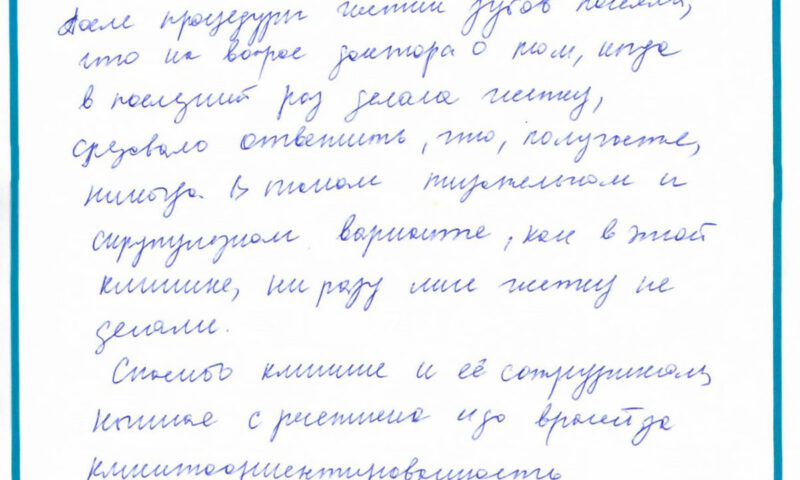 После процедуры чистки зубов поняла,
что на вопрос доктора о том, когда
в последний раз делала чистку,
следовало ответить, что, получается,
никогда. В таком тщательном и
скрупулезном варианте, как в этой
клинике, ни разу мне чистку не
делали.
Спасибо клинике и её сотрудникам,
начиная с ресепшена и до врачей за
клиентоориентированность